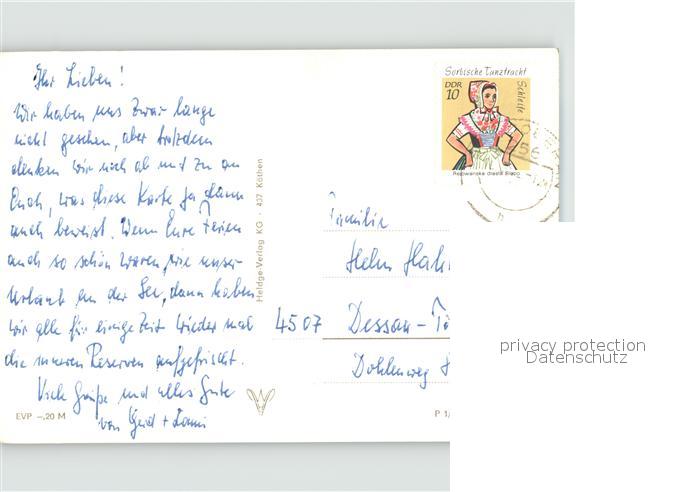 Ihr Lieben!
Wir haben uns zwar lange
nicht gesehen, aber trotzdem
denken wir noch ab und zu an
Euch, was diese Karte ja dann
auch beweist. Wenn Eure Ferien
auch so schön waren, wie unser
Urlaub an der See, dann haben
wir alle für einige Zeit wieder mal
die inneren Reserven aufgefrischt.
Viele Grüße und alles Gute
von Gerd +
EVP –,20 M
Heldge-Verlag KG · 437 Köthen
Sorbische Tanztracht
DDR
10
Schleife
Familie
4507 Dessau-
Dohlenweg
P 1/
privacy protection
Datenschutz